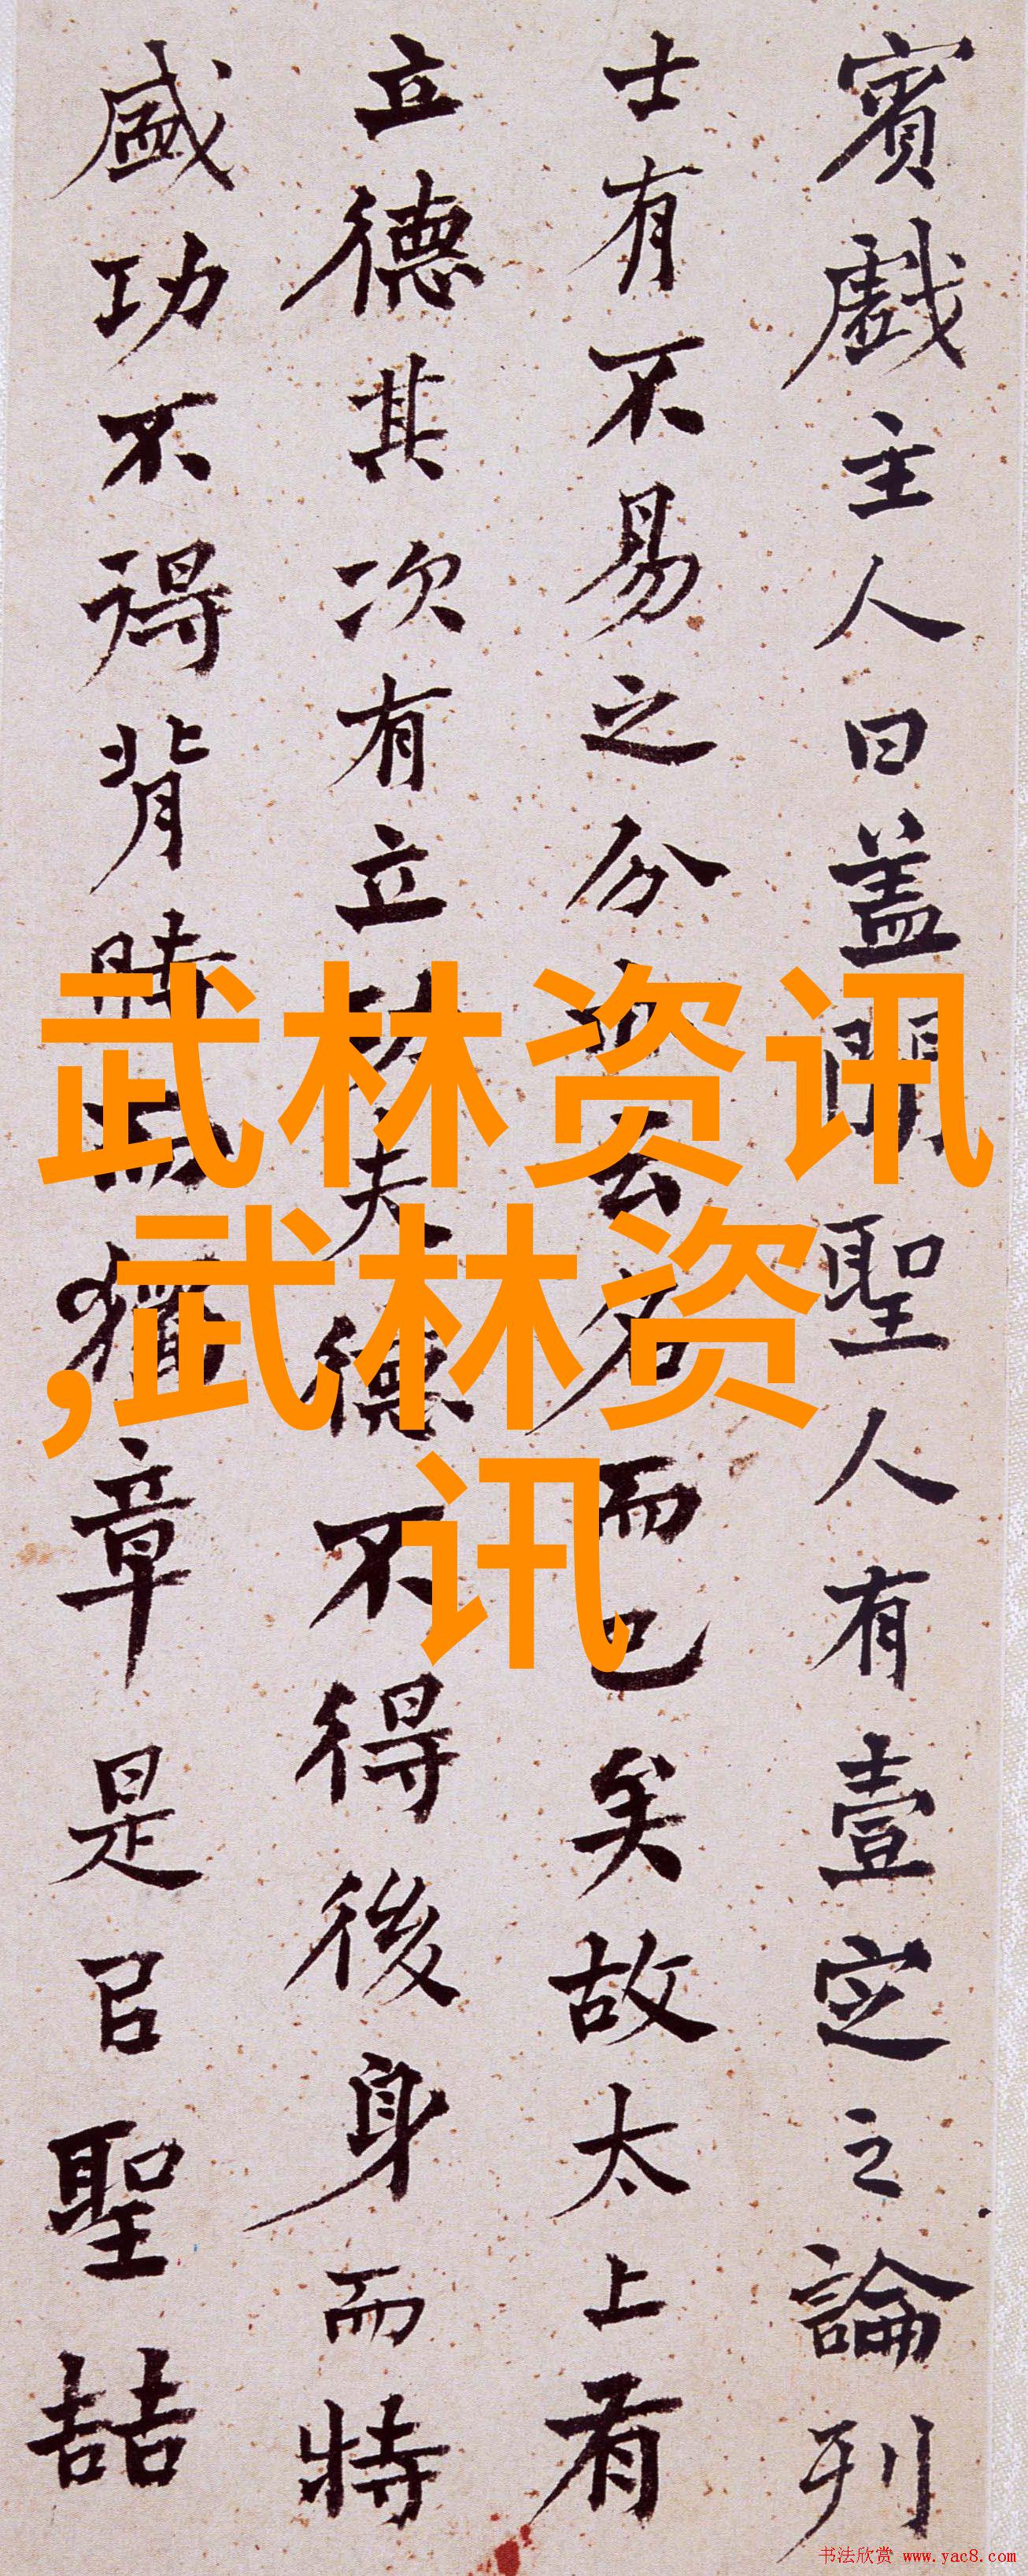 賓戲主人曰盖聞聖人有壹定之論列
士有不易之分云名而已矣故太上有
立德其次有立夫德不得後身而特
盛功不得背時而獨章是㠯聖喆
武林资讯
,武林资
讯
书法欣赏 www.yac8.com